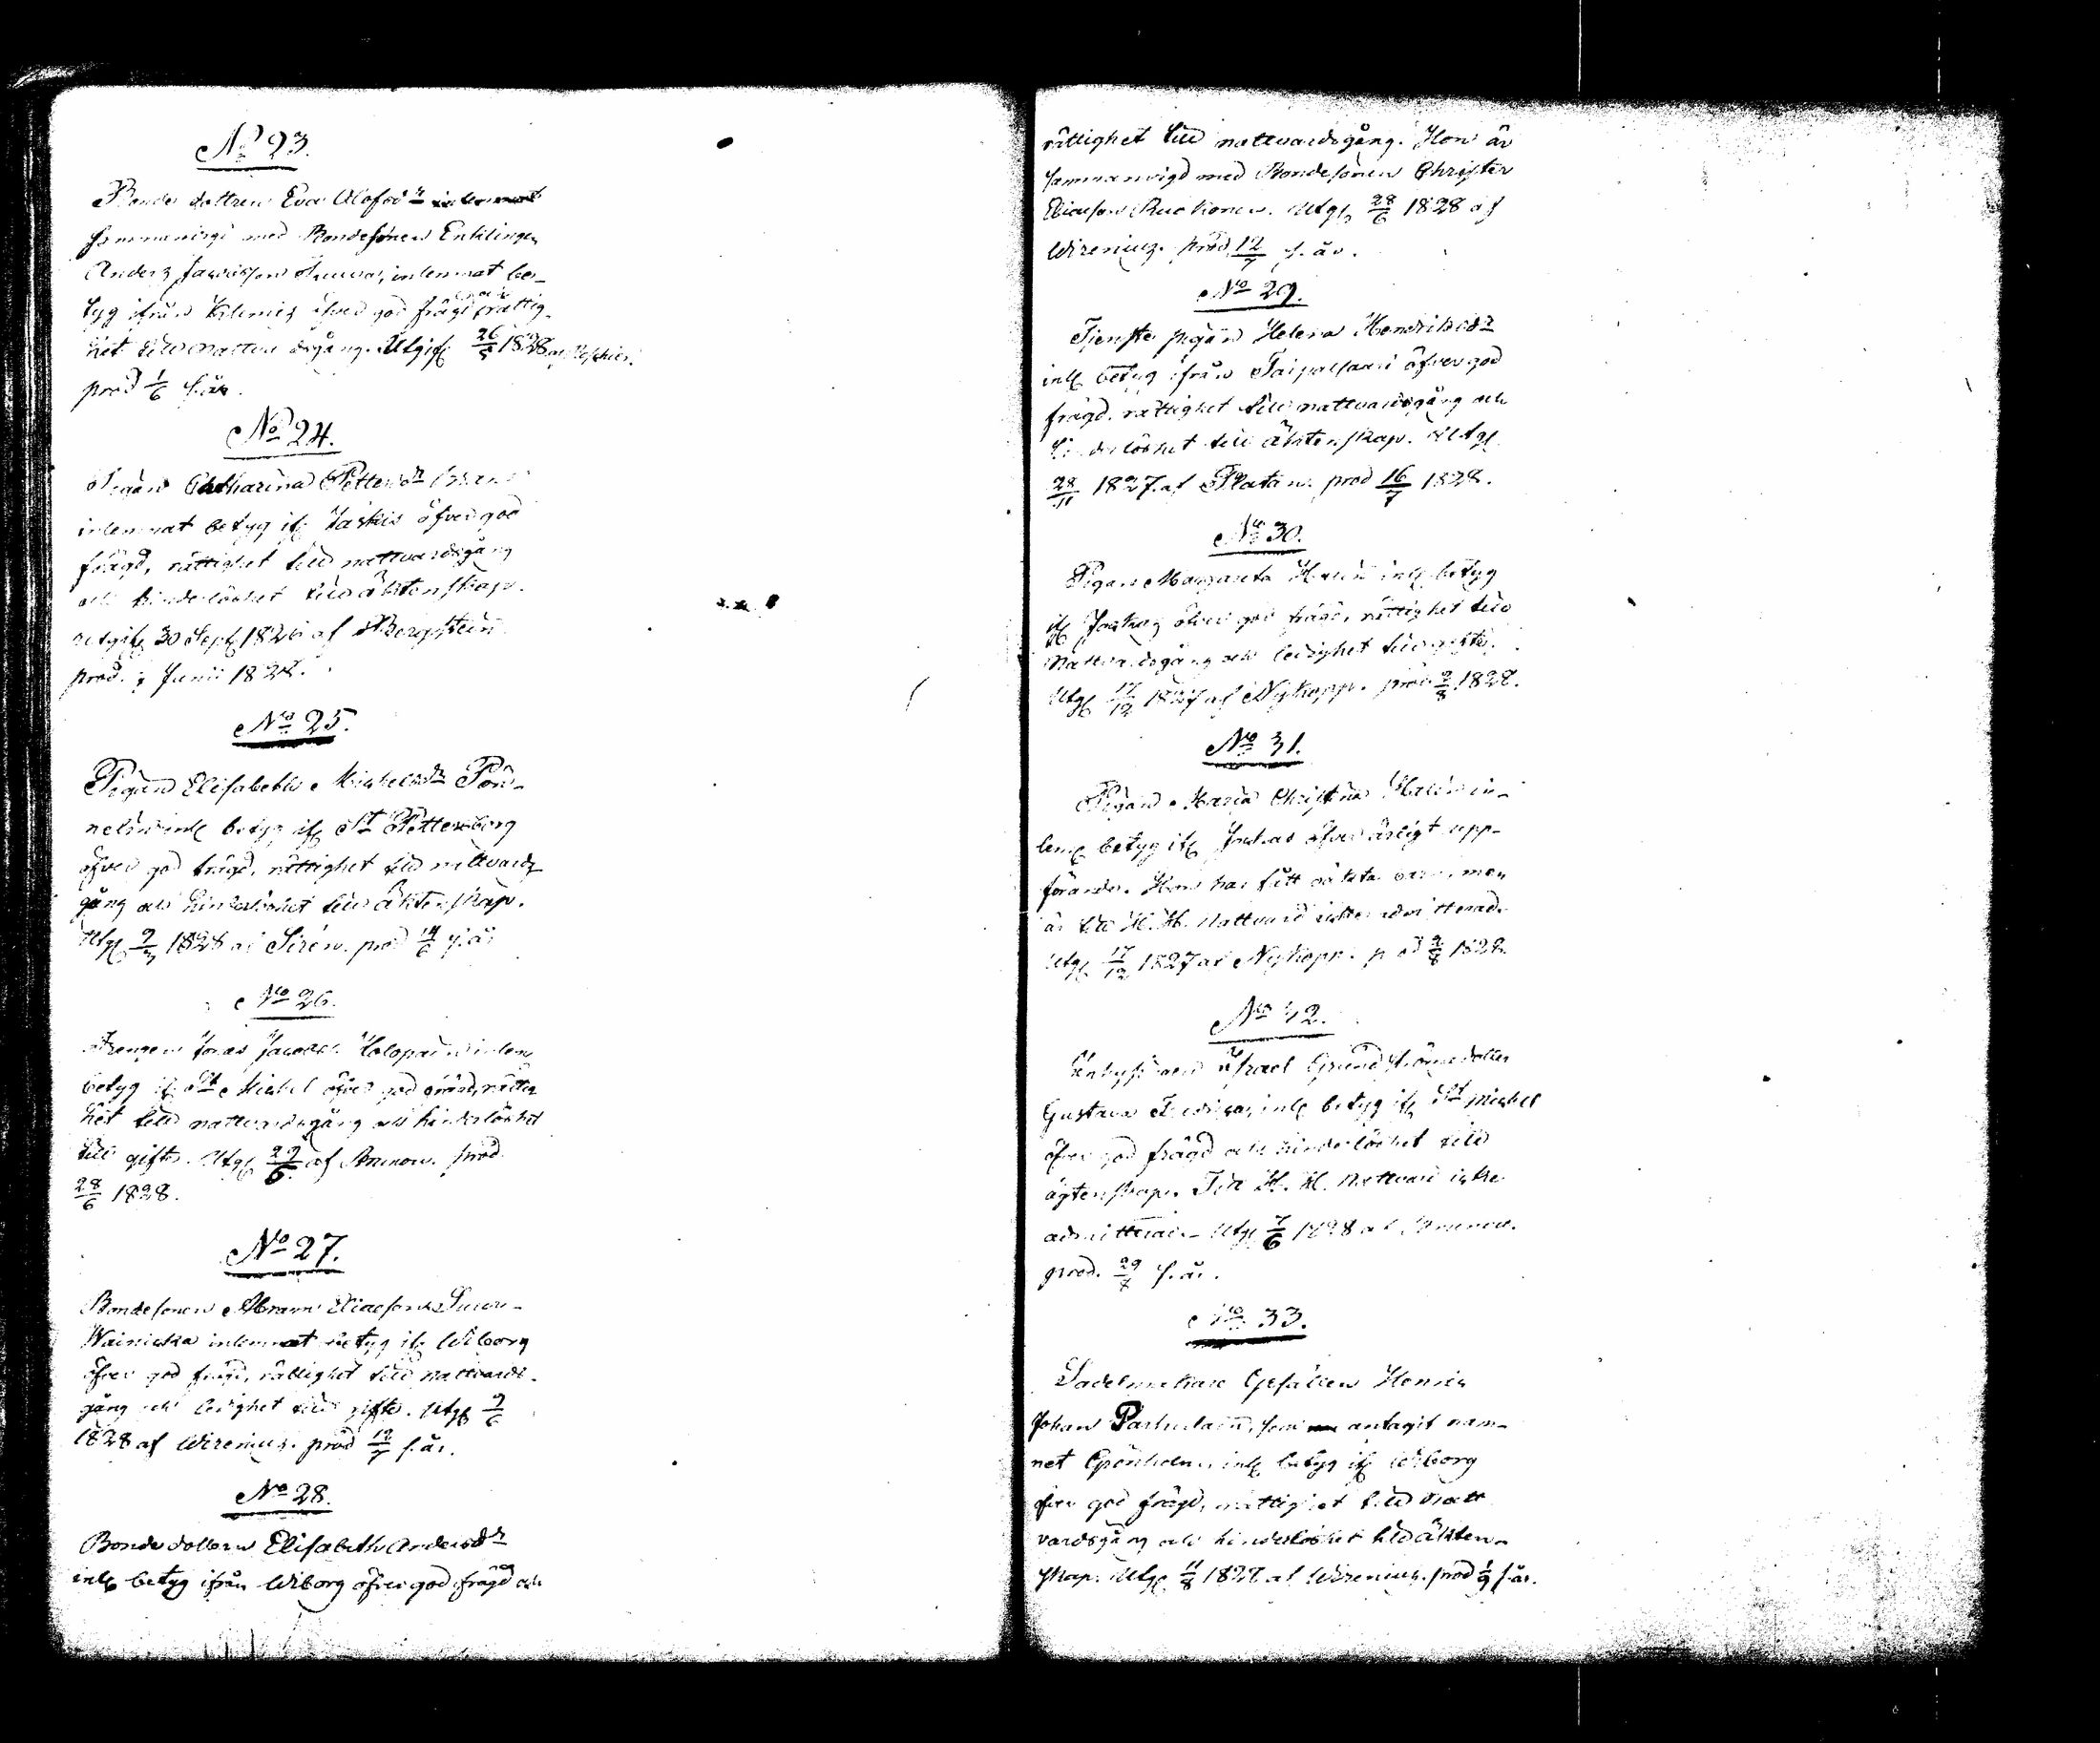 No 23.
Bonde dottren Eva Olofsdr
sammanvigd med Bondesonen Enklingen
Anders inlemnat be-
tyg ifrån öfver god frägd och rättig-
het till nattvardsgång. Utgif. 26/5 1828 af
prod 1/6 s. år.
No 24.
Pigan Catharina Pettersdr
inlemnat betyg if Jaskis öfver god
frägd, rättighet till nattvardsgång
och hinderlöshet till äktenskap.
utgif 30 Sept 1826 af Bergstein
prod. Junii 1828.
No 25.
Pigan Elisabeth Michelsdr Pön-
inl betyg if St Pettersborg
öfver god frägd, rättighet till nattvards
gång och hinderlöshet till äktenskap.
Utg 9/3 1828 af Sirén. prod 14/6 s. år
No 26.
Drengen Jonas Jacobss. Holopain inlem
betyg if St Michel öfver god frägd, rättig
het till nattvardsgång och hinderlöshet
till gifte. Utg 22/6 af Brunow. prod
28/6 1828.
No 27.
Bondesonen Abram Eliasson
Wainicka inlemnat betyg if Wiborg
öfver god frägd, rättighet till nattvards-
gång och ledighet till gifte. Utg 9/6
1828 af Wirenius. prod 12/7 s. år.
No 28.
Bonde dottern Elisabeth Andersdr
inl betyg ifrån Wiborg öfver god frägd och
rättighet till nattvardsgång. Hon är
sammanvigd med Bondesonen Christer
Eliasson Ruokonen. Utg 28/6 1828 af
Wirenius. prod 12/7 s. år.
No 29.
Tjenste pigan Helena Hendriksdr
inl betyg ifrån Taipalsaari öfver god
frägd. rättighet till nattvardsgång och
hinderlöshet till äktenskap. Utg
28/11 1827. af Platan. prod 16/7 1828.
No 30.
Pigan Margareta Halin inl betyg
if Jockas öfver god frägd, rättighet till
Nattvardsgång och ledighet till gifte.
Utg 17/12 1827 af Nykopp. prod 2/8 1828.
No 31.
Pigan Maria Christina Halin in-
lem betyg if Jockas öfver ärligt upp-
förande. Hon har fått oäkta barn, men
är till H. H. Nattvard icke admitterad.
Utg 17/12 1827 af Nykopp. prod 2/8 1828
No 32.
Israel Grundströms dotter
Gustava Fredrica, inl betyg if St Michel
öfver god frägd och hinderlöshet till
ägtenskap. Till H. H. Nattvard icke
admitterad. Utg 7/6 1828 af Brunow.
prod. 29/8 s. år.
No 33.
Sadelmakare Gesällen Henric
Johan som antagit nam-
net Grönholm, inl betyg if Wiborg
öfver god frägd, rättighet till Natt
vardsgång och hinderlöshet till äkten-
skap. Utg 11/8 1828 af Wirenius. prod 1/9 s. år.